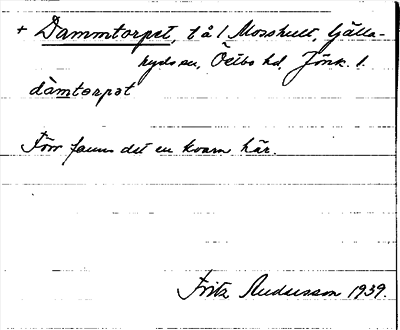 + Dammtorpet, t å 1 Mosshult, Gälla-
ryds sn, Östbo hd, Jönk. l.
dàmtorpət
Förr fanns det en kvarn här.
Fritz Andersson 1939.